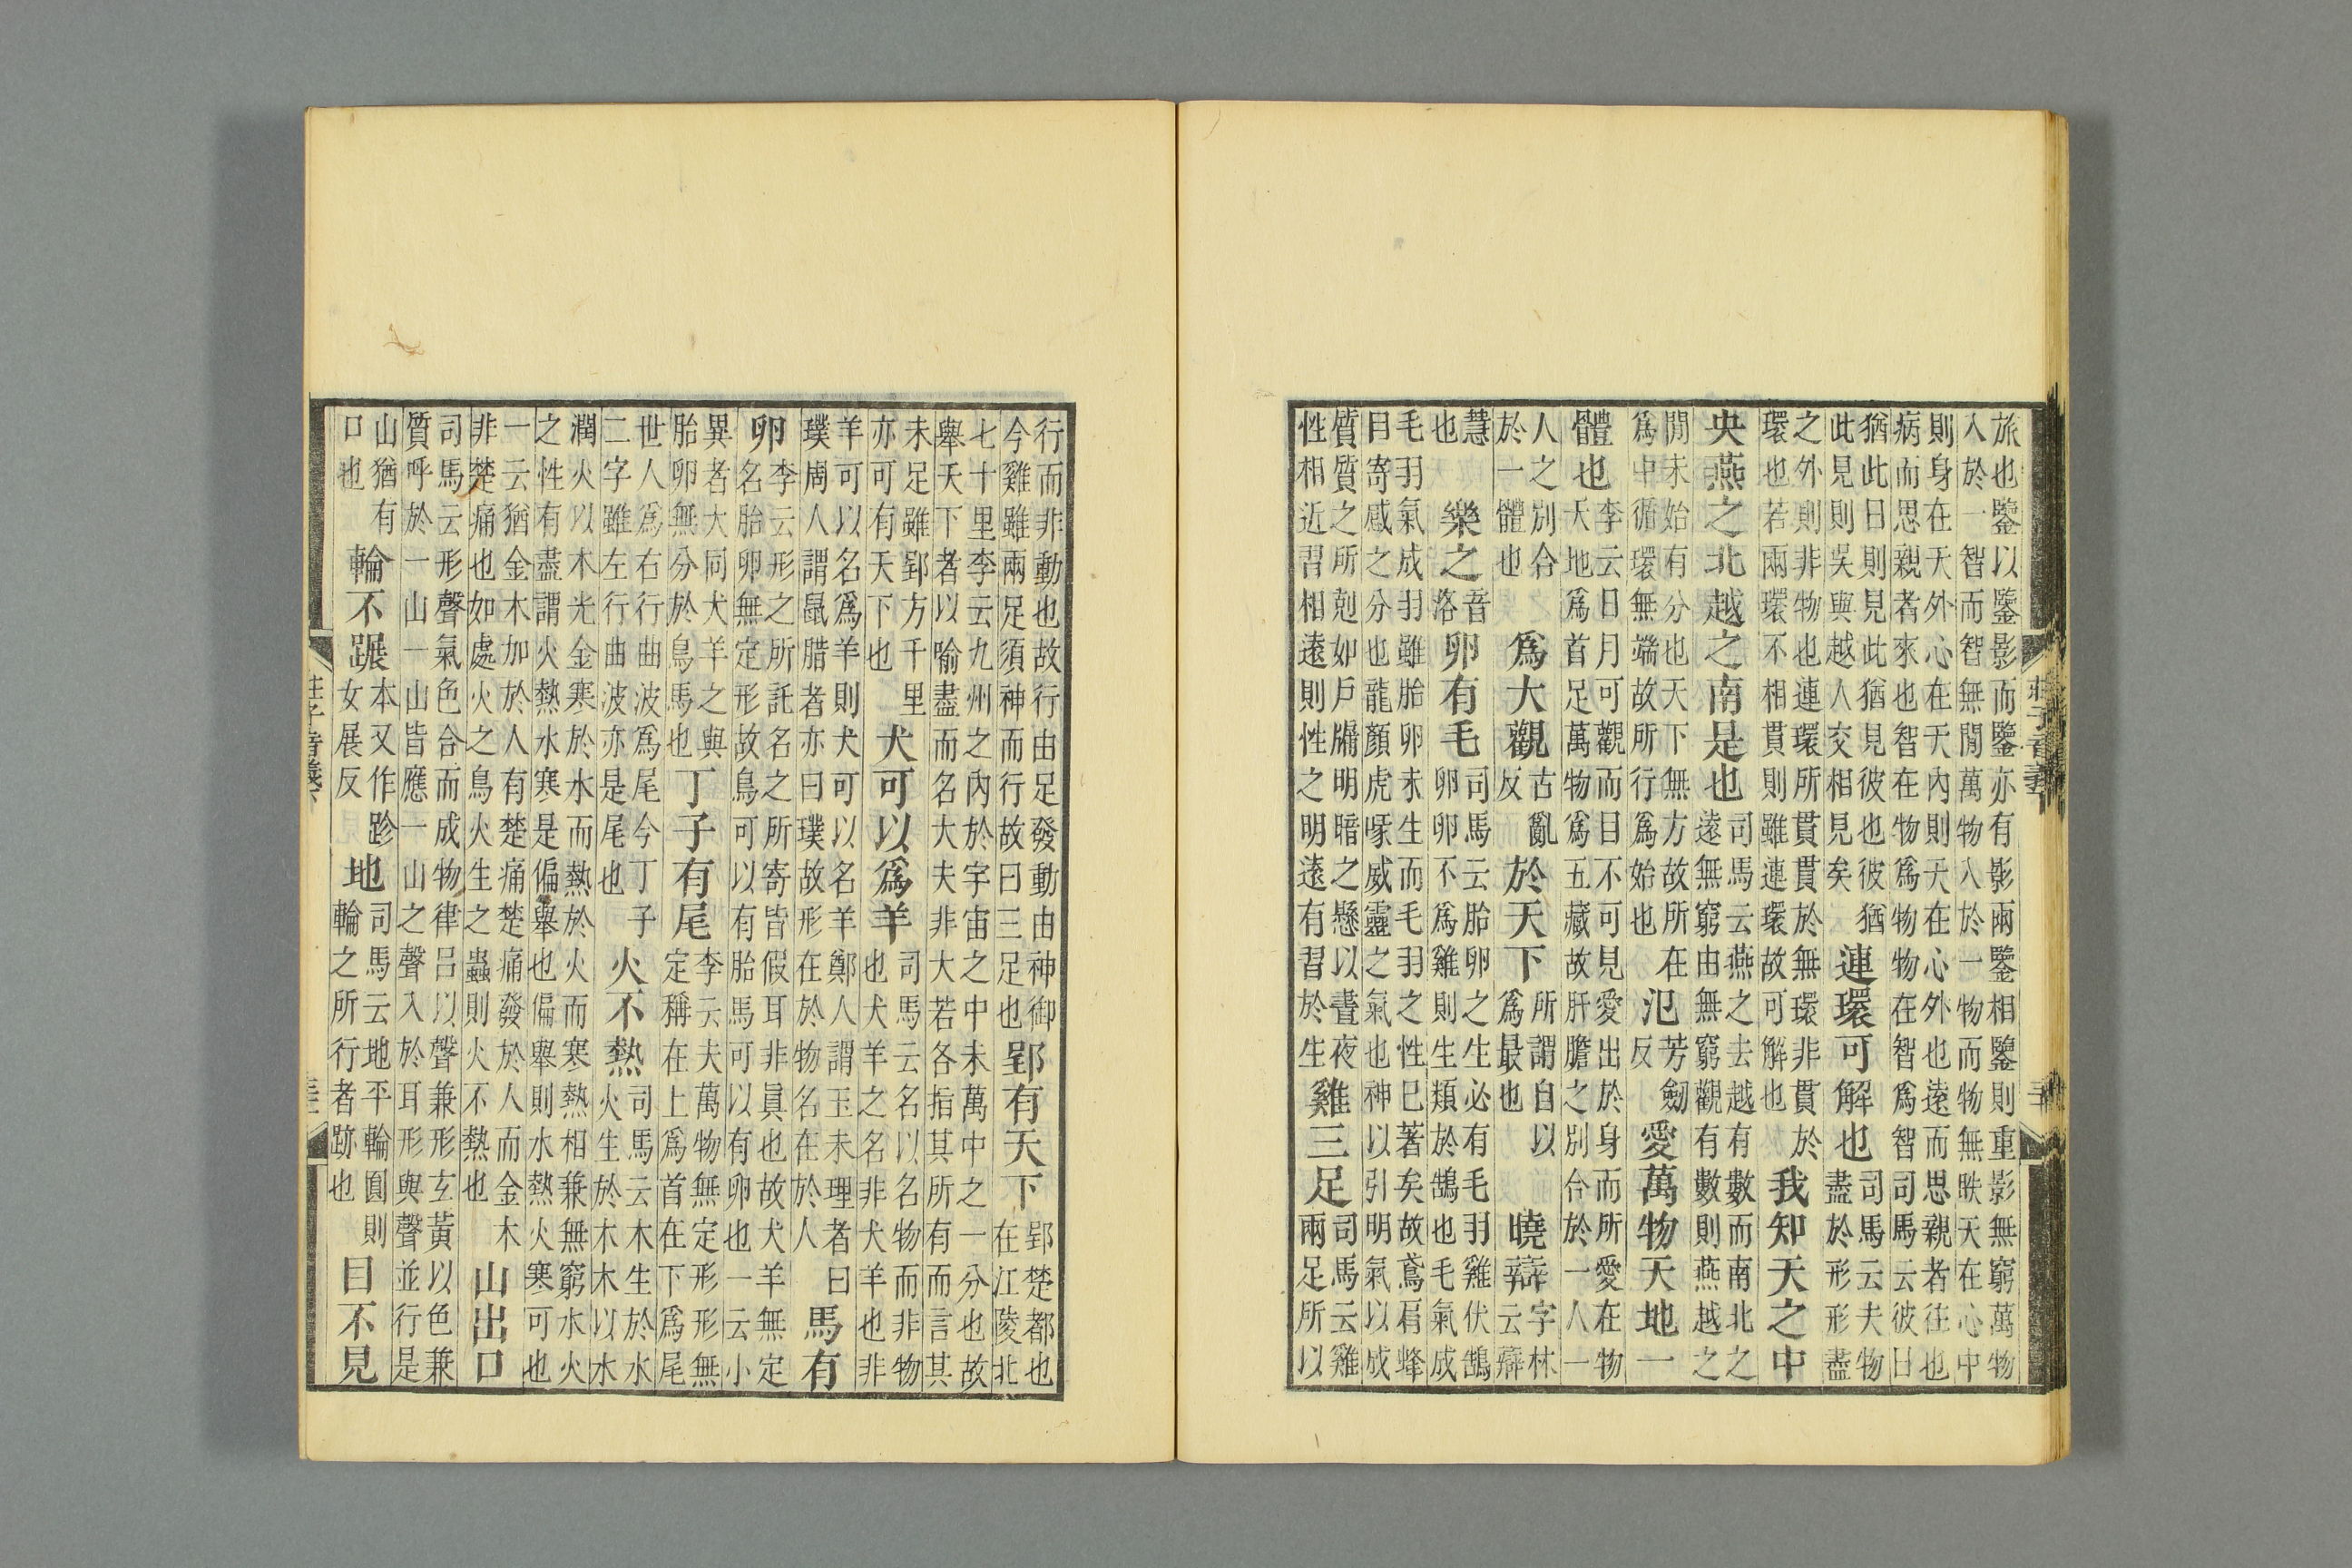 旅也鑒以鑒影而鑒亦有影兩鑒相鑒則重影無窮萬物
入於一智而智無閒萬物入於一物而物無眹天在心中
則身在天外心在天內則天在心外也遠而思親者往也
病而思親者來也智在物爲物物在智爲智司馬云彼日
猶此日則見此猶見彼也彼猶此見則吳與越人交相見矣連環可解也司馬云夫物盡於形形盡
之外則非物也連環所貫貫於無環非貫於環也若兩環不相貫則雖連環故可解也我知天之中
央燕之北越之南是也司馬云燕之去越有數而南北之遠無窮由無窮觀有數則燕越之
閒未始有分也天下無方故所在爲中循環無端故所行爲始也氾芳劒反愛萬物天地一
體也李云日月可觀而目不可見愛出於身而所愛在物天地爲首足萬物爲五藏故肝膽之別合於一人一
人之別合於一體也爲大觀古亂反於天下所謂自以爲最也曉辯字林云辯
慧也樂之音洛卵有毛司馬云胎卵之生必有毛羽雞伏鵠卵卵不爲雞則生類於鵠也毛氣成
毛羽氣成羽雖胎卵未生而毛羽之性已著矣故鳶肩蜂
目寄感之分也龍顏虎啄威靈之氣也神以引明氣以成
質質之所剋如戶牖明暗之懸以晝夜性相近習相遠則性之明遠有習於生雞三足司馬云雞兩足所以
莊子音義下
行而非動也故行由足發動由神御今雞雖兩足須神而行故曰三足也郢有天下郢楚都也在江陵北
七十里李云九州之內於宇宙之中未萬中之一分也故
舉天下者以喻盡而名大夫非大若各指其所有而言其
未足雖郢方千里亦可有天下也犬可以爲羊司馬云名以名物而非物也犬羊之名非犬羊也非
羊可以名爲羊則犬可以名羊鄭人謂玉未理者曰璞周人謂鼠腊者亦曰璞故形在於物名在於人馬有
卵李云形之所託名之所寄皆假耳非眞也故犬羊無定名胎卵無定形故鳥可以有胎馬可以有卵也一云小
異者大同犬羊之與胎卵無分於鳥馬也丁子有尾李云夫萬物無定形形無定稱在上爲首在下爲尾
世人爲右行曲波爲尾今丁子二字雖左行曲波亦是尾也火不熱司馬云木生於水火生於木木以水
潤火以木光金寒於水而熱於火而寒熱相兼無窮水火
之性有盡謂火熱水寒是偏舉也偏舉則水熱火寒可也
一云猶金木加於人有楚痛楚痛發於人而金木非楚痛也如處火之鳥火生之蟲則火不熱也山出口
司馬云形聲氣色合而成物律呂以聲兼形玄黃以色兼
質呼於一山一山皆應一山之聲入於耳形與聲並行是
山猶有口也輪不蹍本又作跈女展反地司馬云地平輪圓則輪之所行者跡也目不見